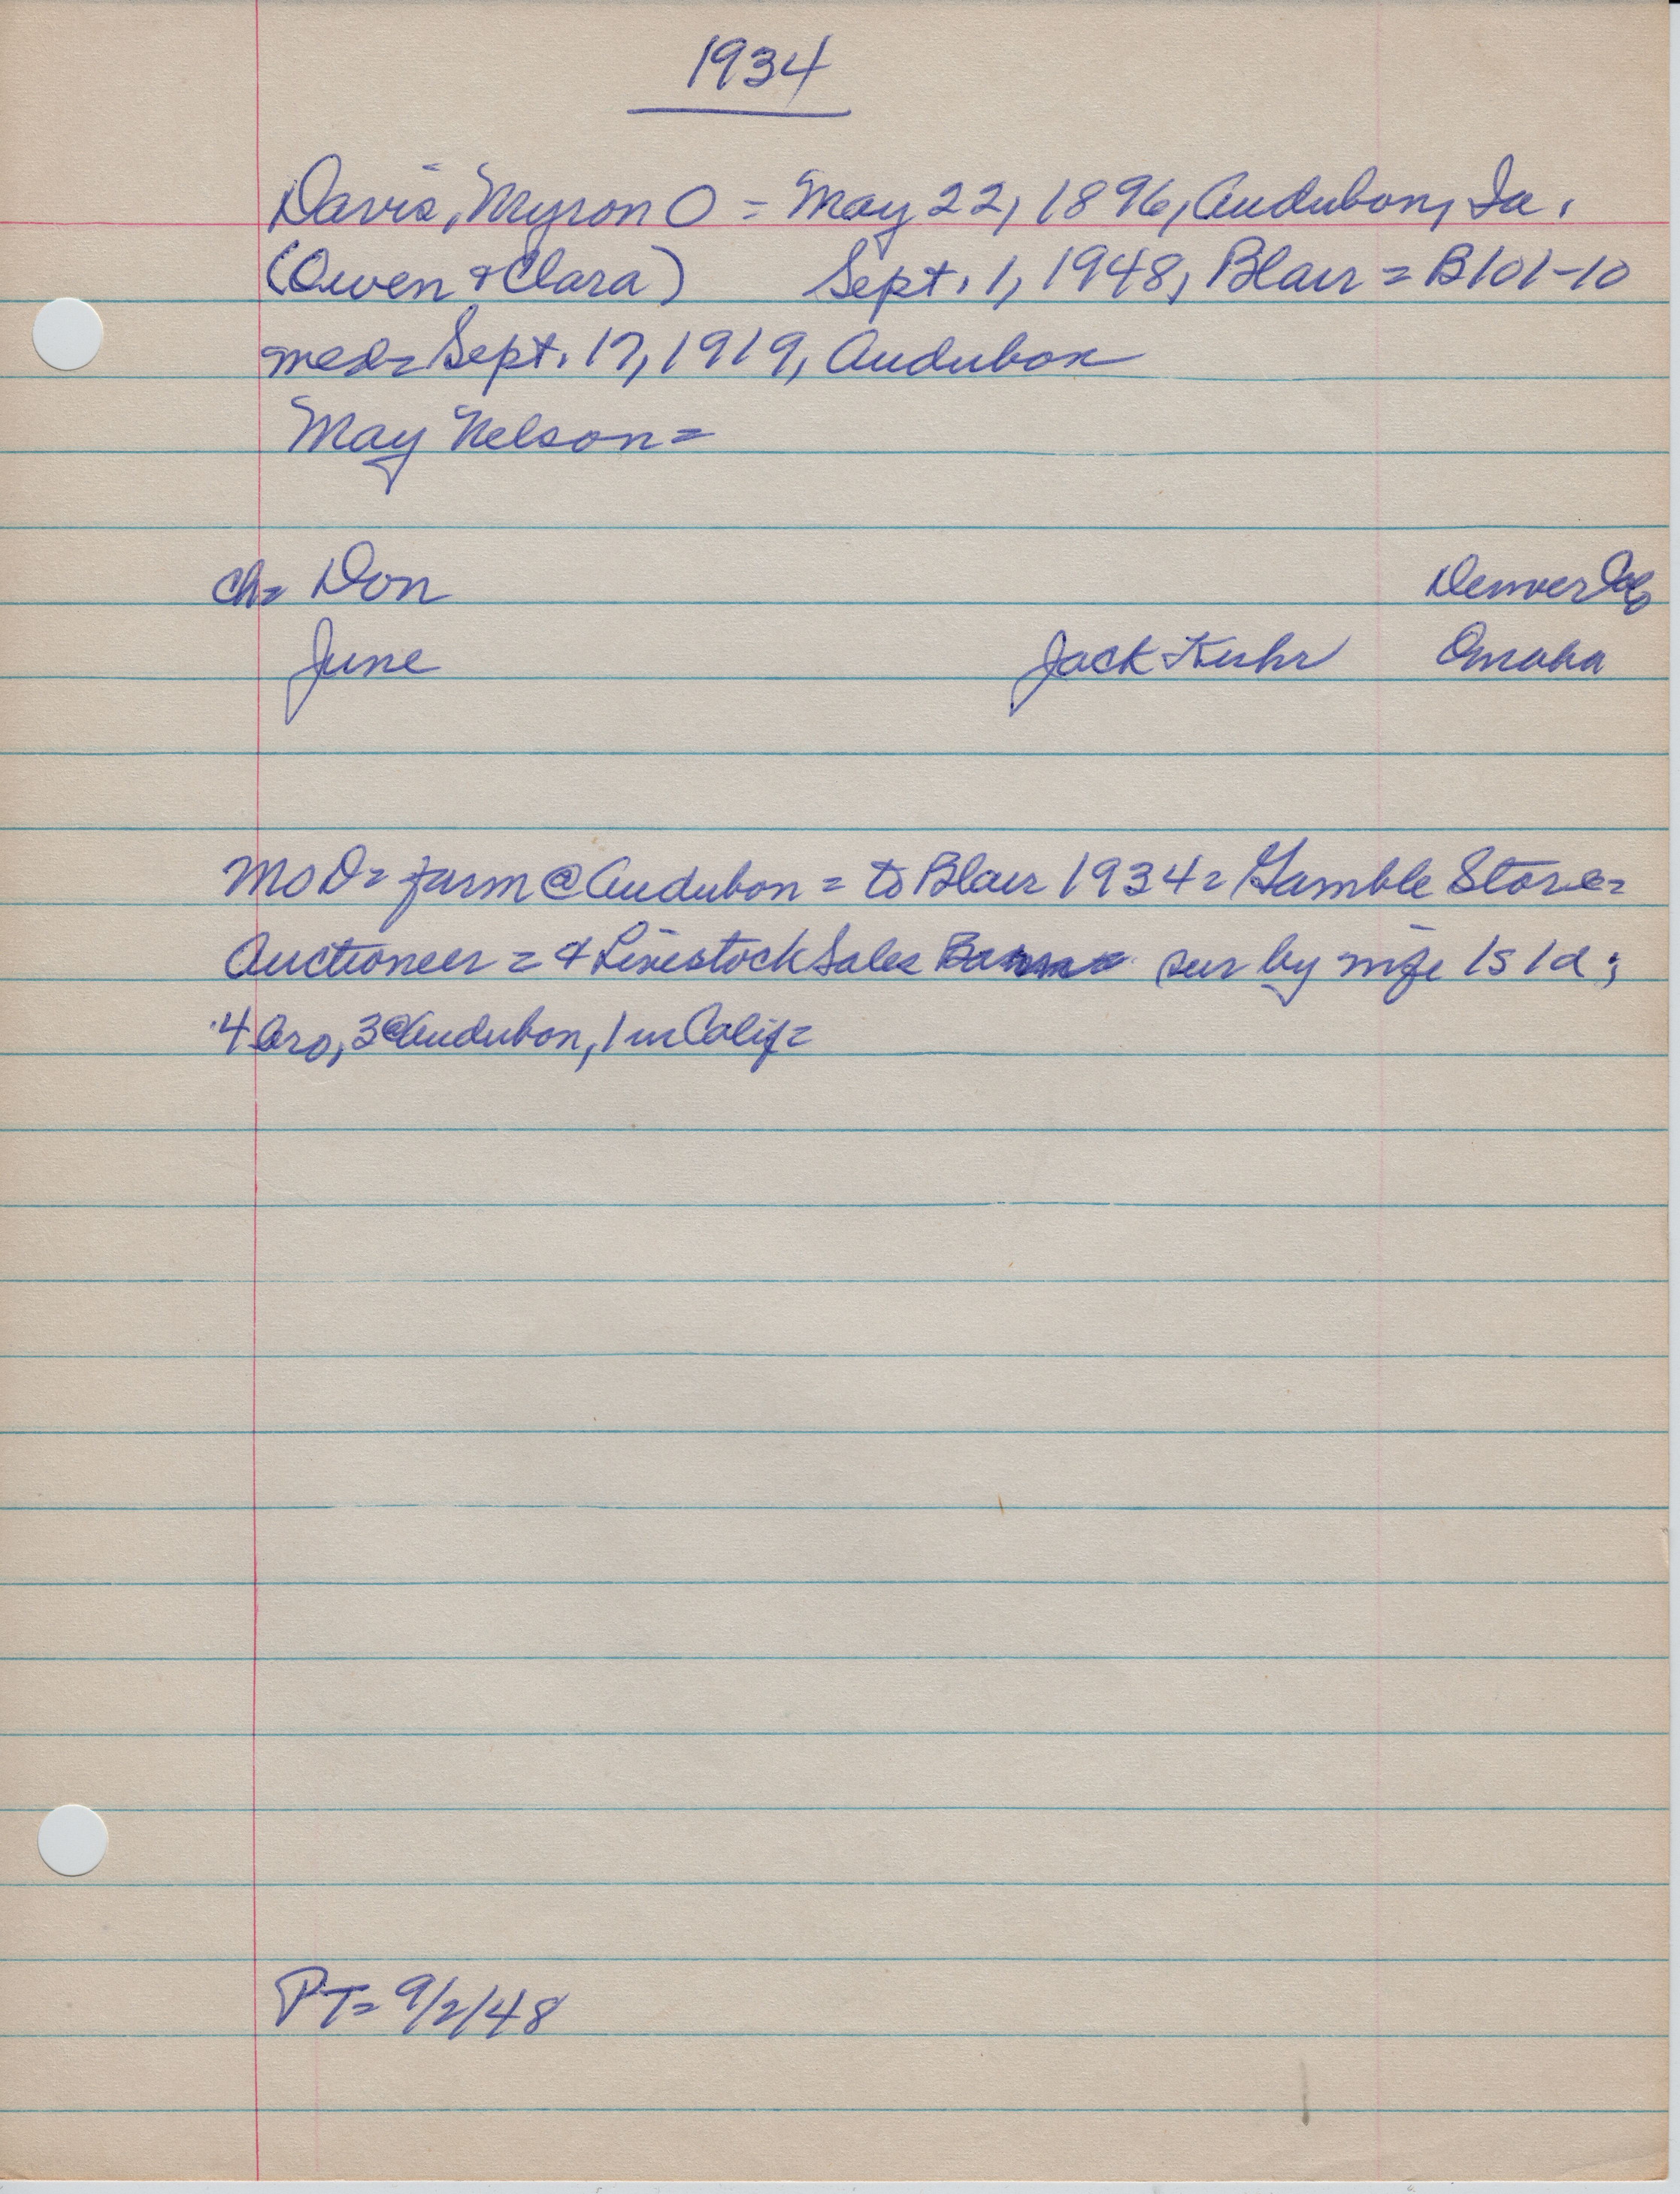 1934
Davis, Myron O = May 22, 1896, Audubon, Ia.
(Owen & Clara) Sept. 1, 1948, Blair = B101-10
med= Sept. 17, 1919, Audubon
May Nelson=
ch= Don Denver
June Jack Kuhr Omaha
MOD= farm @ Audubon = to Blair 1934= Gamble Store=
Auctioneer = & Livestock Sales Barn= sur by wife 1s 1d;
4 bro, 3 @ Audubon, 1 in Calif=
PT= 9/2/48